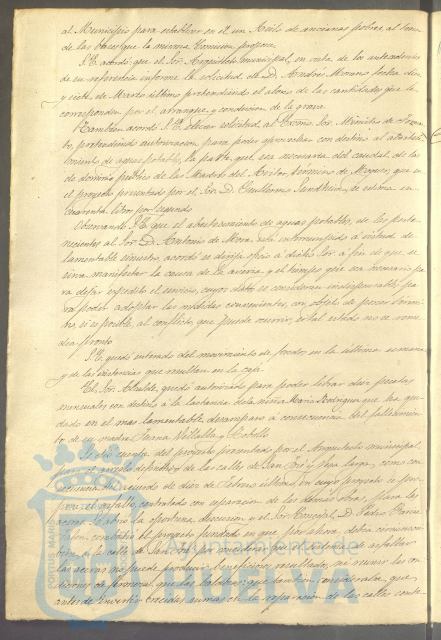 al Municipio para establecer en él un Asilo de ancianos pobres, al tenor
de las bases que la misma Comision propone.
S.E. acordó: que el Sor. Arquitecto municipal, en vista de los antecedentes
de su referencia informe la solicitud de D. Andrés Moreno fecha diez
y siete de Marzo último pretendiendo el abono de las cantidades que le
corresponden por el arranque y conduccion de la grava.
Tambien acordó S.E. elevar solicitud al Excmo. Sor. Ministro de Fomen-
to, pretendiendo autorizacion para poder aprovechar con destino al abasteci-
miento de aguas potables, la parte que sea necesaria del caudal de las
de dominio público de las Madres del Avitor, término de Moguer, que en
el proyecto presentado por el Sor. D. Guillermo Sundheim, se estima en
cuarenta litros por segundo.
Observando S.E. que el abastecimiento de aguas potables, de las perte-
necientes al Sor. D. Antonio de Mora, está interrumpido á virtud de
lamentable siniestro, acordó se dirija oficio á dicho Sor. á fin de que se
sirva manifestar la causa de la avería y el tiempo que sea necesario pa-
ra dejar expedito el servicio, cuyos datos se consideran indispensables pa-
ra poder adoptar las medidas consiguientes, con objeto de poner térmi-
no, si es posible, al conflicto que puede ocurrir, si tal estado no se reme-
dia pronto.
S.E. quedó enterado del movimiento de fondos en la última semana
y de las existencias que resultan en la caja.
El Sor. Alcalde quedó autorizado para poder librar diez pesetas
mensuales con destino á la lactancia de la niña María Rodriguez que ha que-
dado en el mas lamentable desamparo á consecuencia del fallecimien-
to de su madre Juana Villalba y Rebollo.
Se dió cuenta del proyecto presentado por el Arquitecto municipal,
para el arreglo de las calles de San José y Vega larga, como con-
secuencia del acuerdo de diez de Febrero último, en cuyo proyecto se pro-
pone el asfalto, contratado con separacion de las demas obras, para las
aceras. Se abrió la oportuna discusion y el Sor. Concejal D. Pedro Garcia
Jalon combatió el proyecto fundado en que por ahora debia circunscri-
birse á la calle de San José por considerar que el sistema de asfaltar
las aceras no puede producir beneficiosos resultados, ni reunir las con-
diciones de firmeza que las baldosas: que tambien consideraba que
antes de invertir crecidas sumas en la reparacion de las calles conte-
PORTUS MARIS
Ayuntamiento de
HUELVA